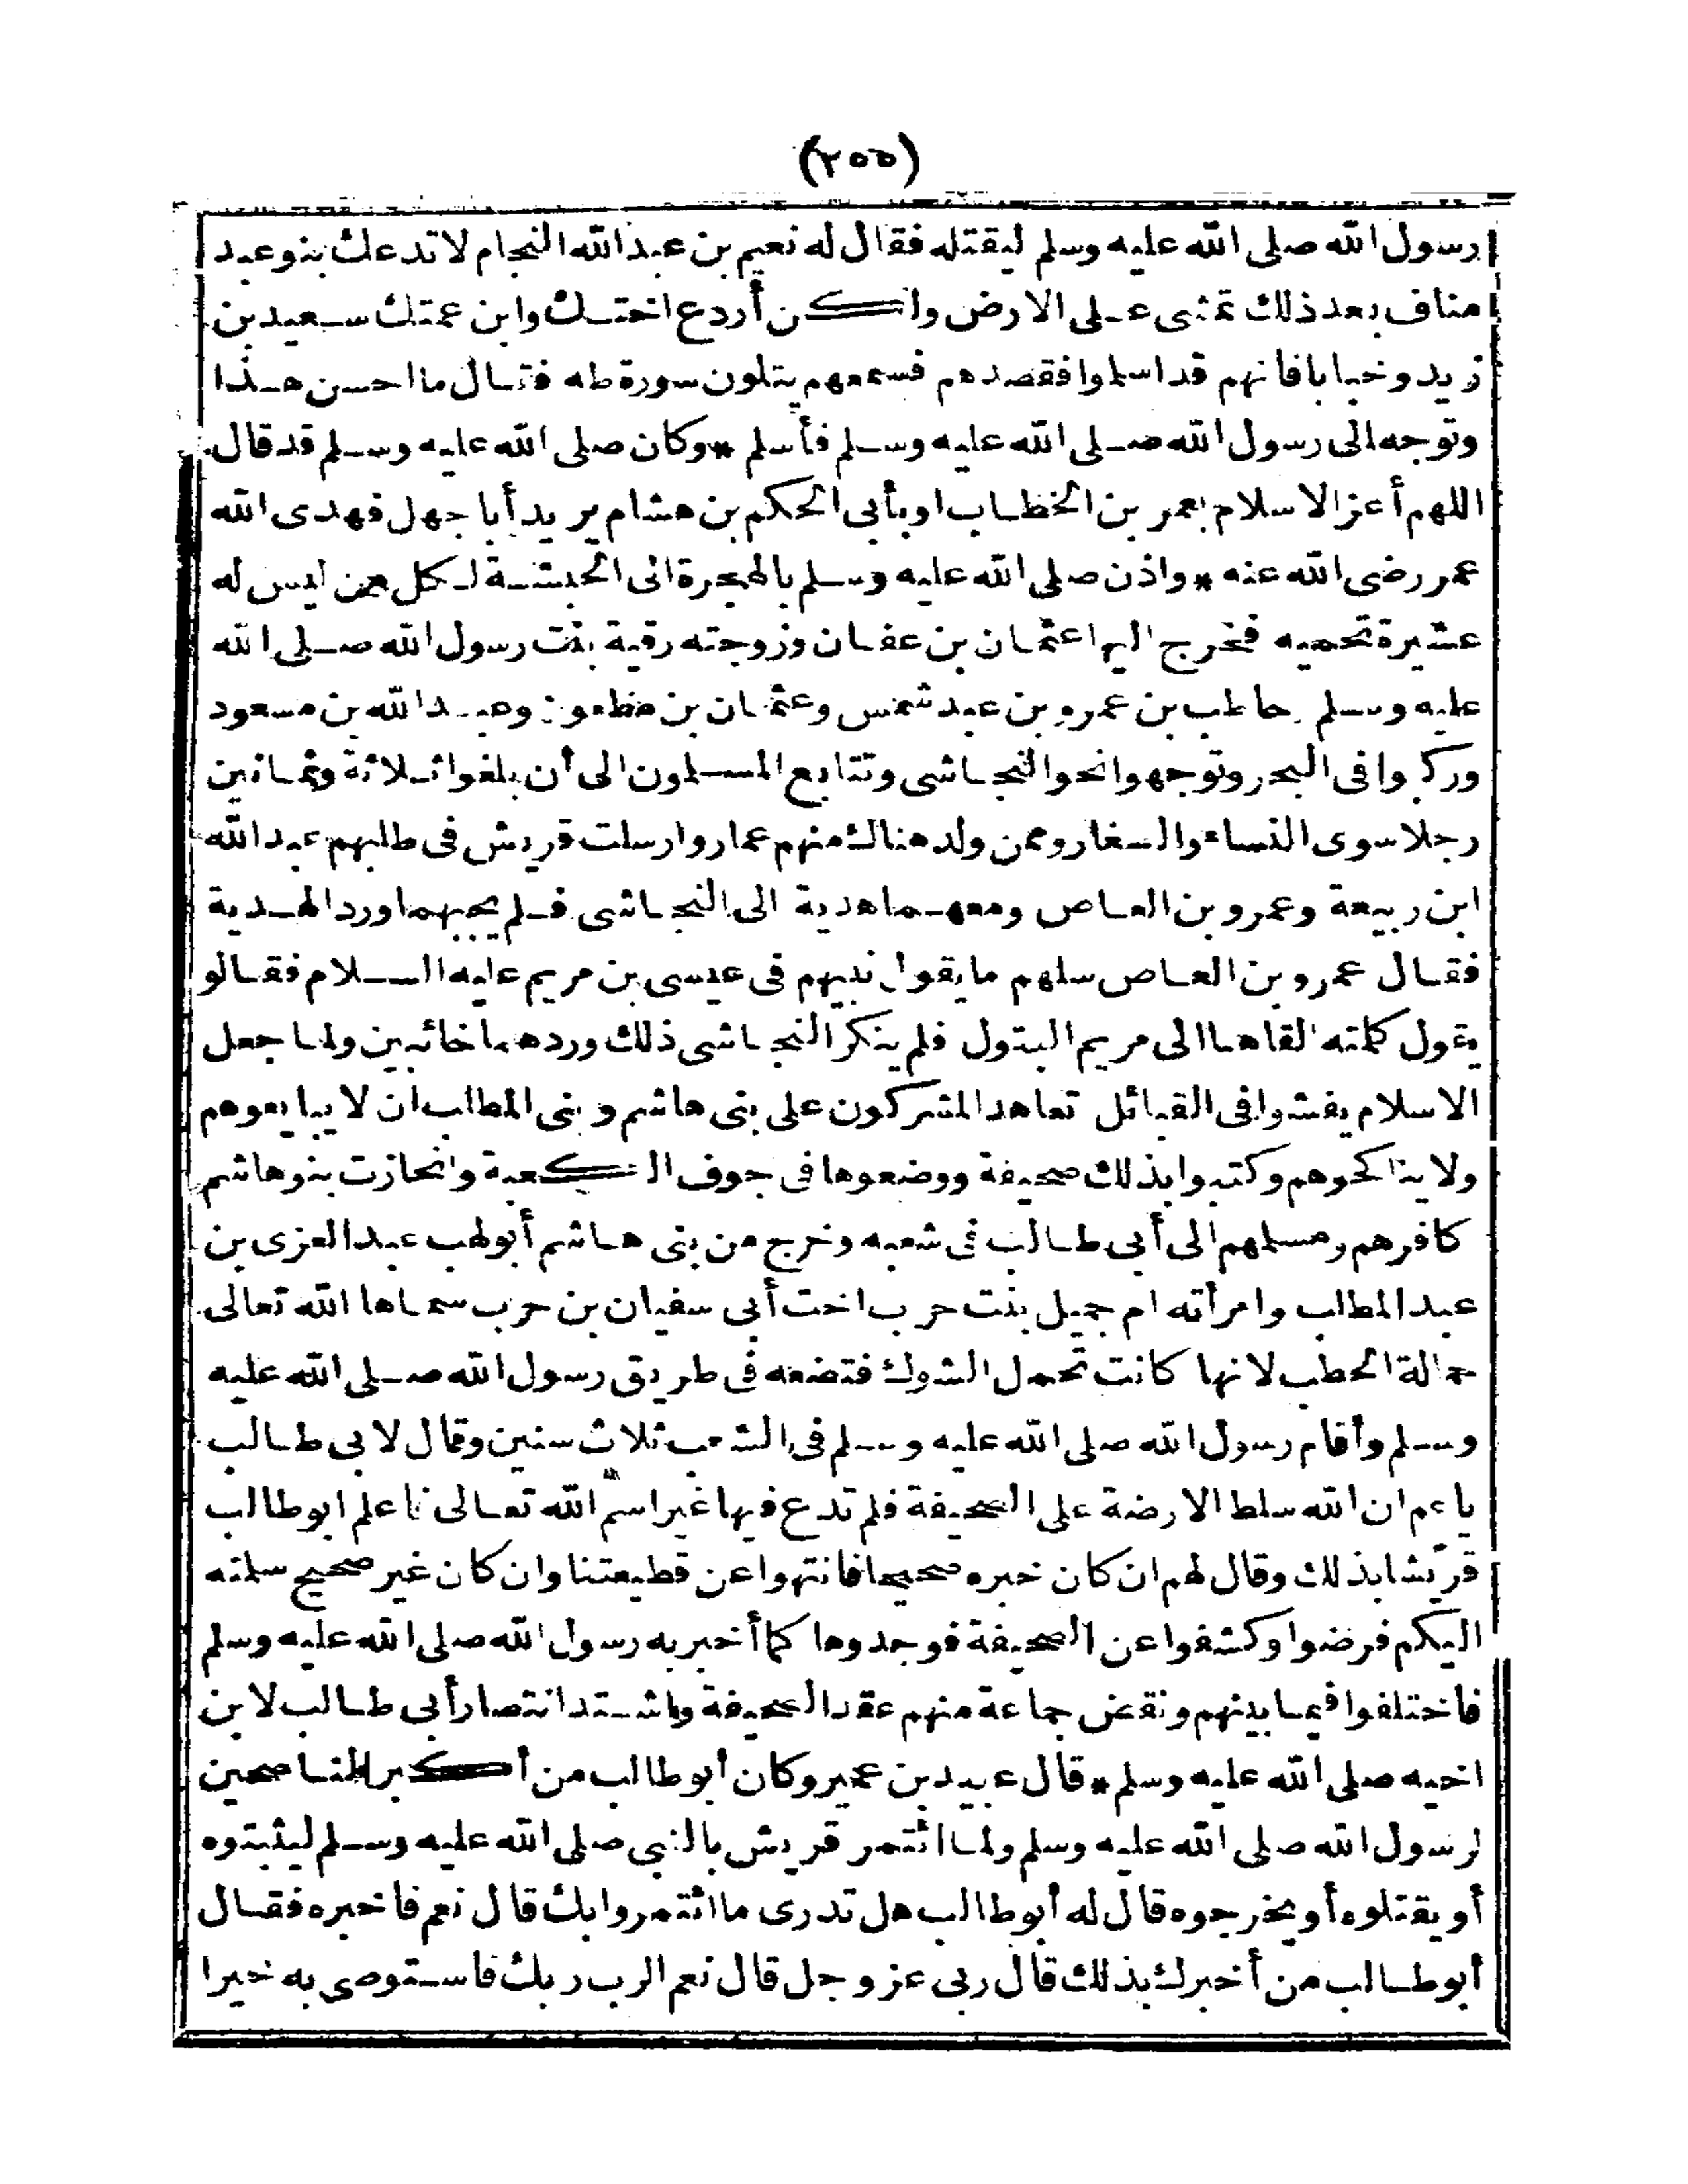 (٢٥٥)
رسول الله صلى الله عليه وسلم ليقتله فقال له نعيم بن عبد الله النحام لا تدعك بنو عبد
مناف بعد ذلك تمشى على الارض ولكن أردع اختك وابن عمتك سعيد بن
زيد وخبابا فانهم قد اسلموا فقصدهم فسمعهم يتلون سورة طه فقال ما احسن هذا
وتوجه الى رسول الله صلى الله عليه وسلم فأسلم * وكان صلى الله عليه وسلم قد قال
اللهم أعز الاسلام بعمر بن الخطاب او بأبى الحكم بن هشام يريد أبا جهل فهدى الله
عمر رضى الله عنه * واذن صلى الله عليه وسلم بالهجرة الى الحبشة لكل من ليس له
عشيرة تحميه فخرج اليها عثمان بن عفان وزوجته رقية بنت رسول الله صلى الله
عليه وسلم حاطب بن عمرو بن عبد شمس وعثمان بن مظعون وعبد الله بن مسعود
وركبوا فى البحر وتوجهوا نحو النجاشى وتتابع المسلمون الى أن بلغوا ثلاثة وثمانين
رجلا سوى النساء والصغار وممن ولد هنالك منهم عمار وارسلت قريش فى طلبهم عبد الله
ابن ربيعة وعمرو بن العاص ومعهما هدية الى النجاشى فلم يجبهما ورد الهدية
فقال عمرو بن العاص سلهم ما يقول نبيهم فى عيسى بن مريم عليه السلام فقالو
يقول كلمته القاها الى مريم البتول فلم ينكر النجاشى ذلك وردهما خائبين ولما جعل
الاسلام يفشوا فى القبائل تعاهد المشركون على بنى هاشم وبنى المطلب ان لا يبايعوهم
ولا يناكحوهم وكتبوا بذلك صحيفة ووضعوها فى جوف الكعبة وانحازت بنو هاشم
كافرهم ومسلمهم الى أبى طالب فى شعبه وخرج من بنى هاشم أبو لهب عبد العزى بن
عبد المطلب وامرأته ام جميل بنت حرب اخت أبى سفيان بن حرب سماها الله تعالى
حمالة الحطب لانها كانت تحمل الشوك فتضعه فى طريق رسول الله صلى الله عليه
وسلم وأقام رسول الله صلى الله عليه وسلم فى الشعب ثلاث سنين وقال لابى طالب
يا عم ان الله سلط الارضة على الصحيفة فلم تدع فيها غير اسم الله تعالى فاعلم ابو طالب
قريشا بذلك وقال لهم ان كان خبره صحيحا فانتهوا عن قطيعتنا وان كان غير صحيح سلمته
اليكم فرضوا وكشفوا عن الصحيفة فوجدوها كما أخبر به رسول الله صلى الله عليه وسلم
فاختلفوا فيما بينهم ونقض جماعة منهم عقد الصحيفة واشتد انتصار أبى طالب لابن
اخيه صلى الله عليه وسلم * قال عبيد بن عمير وكان أبو طالب من أكبر المناصحين
لرسول الله صلى الله عليه وسلم ولما ائتمر قريش بالنبى صلى الله عليه وسلم ليثبتوه
أو يقتلوه أو يخرجوه قال له أبو طالب هل تدرى ما ائتمروا بك قال نعم فاخبره فقال
أبو طالب من أخبرك بذلك قال ربى عز وجل قال نعم الرب ربك فاستوصى به خيرا